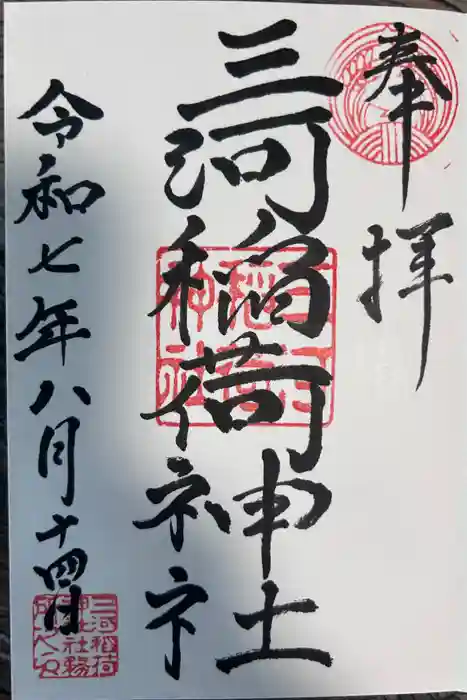 奉拝
三河稲荷神社
令和七年八月十四日
三河稲荷
神社
三河稲荷
神社社務
所之印